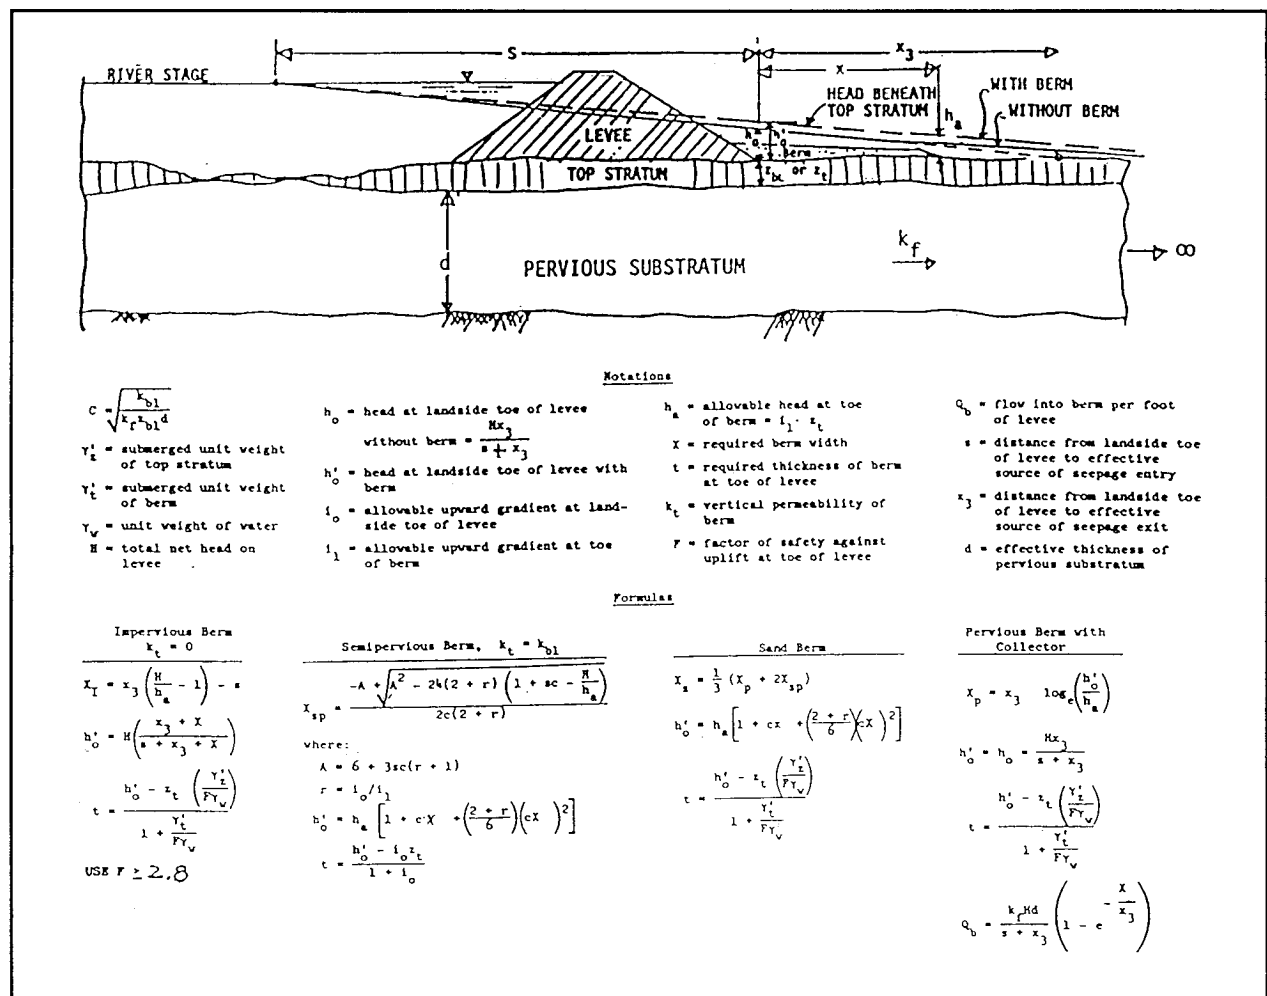 S
x₃
RIVER STAGE
X
HEAD BENEATH
TOP STRATUM
WITH BERM
WITHOUT BERM
hₐ
LEVEE
h'ₒ
Berm
TOP STRATUM
z_bl or z_t
d
PERVIOUS SUBSTRATUM
k_f
∞
Notations
C = √(k_bl / (k_f z_bl d))
γ'_z = submerged unit weight
of top stratum
γ'_t = submerged unit weight
of berm
γ_w = unit weight of water
H = total net head on
levee
h_o = head at landside toe of levee
without berm = Hx₃ / (s + x₃)
h'_o = head at landside toe of levee with
berm
i_o = allowable upward gradient at land-
side toe of levee
i₁ = allowable upward gradient at toe
of berm
h_a = allowable head at toe
of berm = i₁ · z_t
X = required berm width
t = required thickness of berm
at toe of levee
k_t = vertical permeability of
berm
F = factor of safety against
uplift at toe of levee
Q_b = flow into berm per foot
of levee
s = distance from landside toe
of levee to effective
source of seepage entry
x₃ = distance from landside toe
of levee to effective
source of seepage exit
d = effective thickness of
pervious substratum
Formulas
Impervious Berm
k_t = 0
X_I = x₃ (H/h_a - 1) - s
h'_o = H((x₃ + X) / (s + x₃ + X))
t = (h'_o - z_t (γ'_z / Fγ_w)) / (1 + γ'_t / Fγ_w)
USE F ≥ 2.8
Semipervious Berm, k_t = k_bl
X_sp = (-A + √(A² - 24(2 + r) (1 + sc - H/h_a))) / (2c(2 + r))
where:
A = 6 + 3sc(r + 1)
r = i_o/i₁
h'_o = h_a [1 + cX + ((2 + r)/6)(cX)²]
t = (h'_o - i_o z_t) / (1 + i_o)
Sand Berm
X_s = 1/3 (X_p + 2X_sp)
h'_o = h_a [1 + cx + ((2 + r)/6)(cX)²]
t = (h'_o - z_t (γ'_z / Fγ_w)) / (1 + γ'_t / Fγ_w)
Pervious Berm with
Collector
X_p = x₃ log_e(h'_o / h_a)
h'_o = h_o = Hx₃ / (s + x₃)
t = (h'_o - z_t (γ'_z / Fγ_w)) / (1 + γ'_t / Fγ_w)
Q_b = (k_f Hd / (s + x₃)) (1 - e^(-X/x₃))